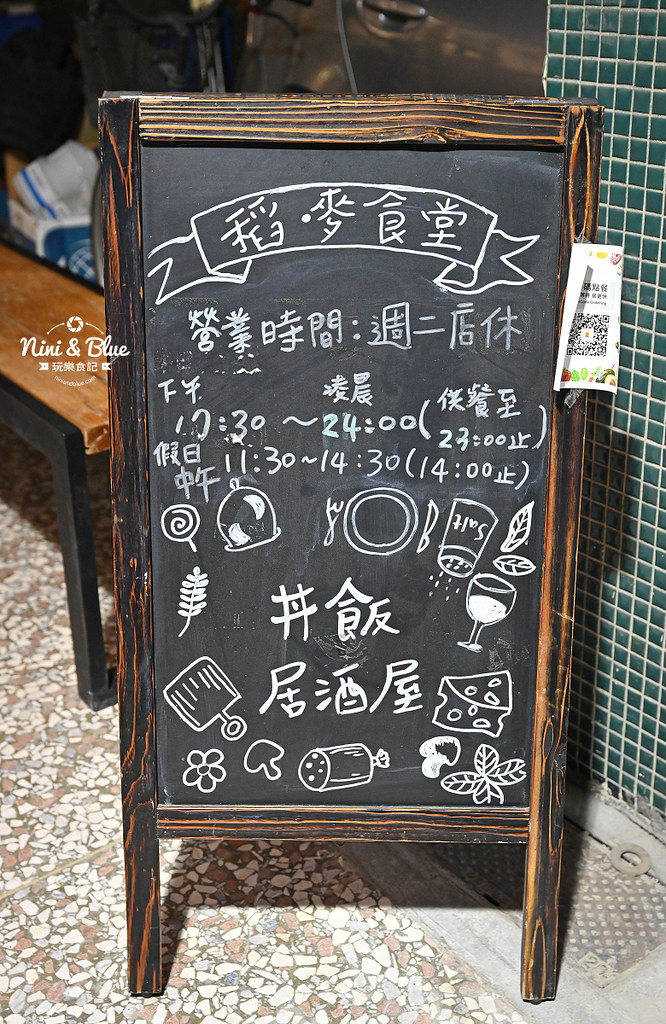 稻·麥食堂
營業時間:週二店休
下午 凌晨 供餐至
17:30 ~ 24:00( 23:00止)
假日
中午 11:30~14:30(14:00止)
Salt
丼飯
居酒屋
碼點餐
Nini & Blue
玩樂食記
niniandblue.com